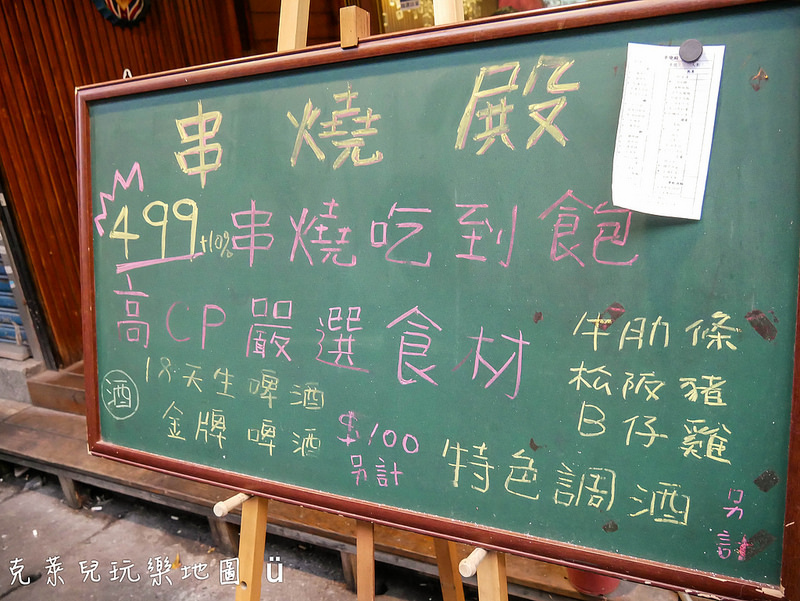 串燒殿
499+10%串燒吃到飽
高CP嚴選食材
牛肋條
松阪豬
B仔雞
酒
18天生啤酒
金牌啤酒
$100
另計
特色調酒
另計
克萊兒玩樂地圖 ü